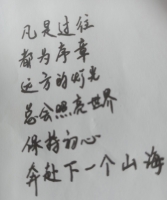 凡是过往
都为序章
远方的灯光
总会照亮世界
保持初心
奔赴下一个山海